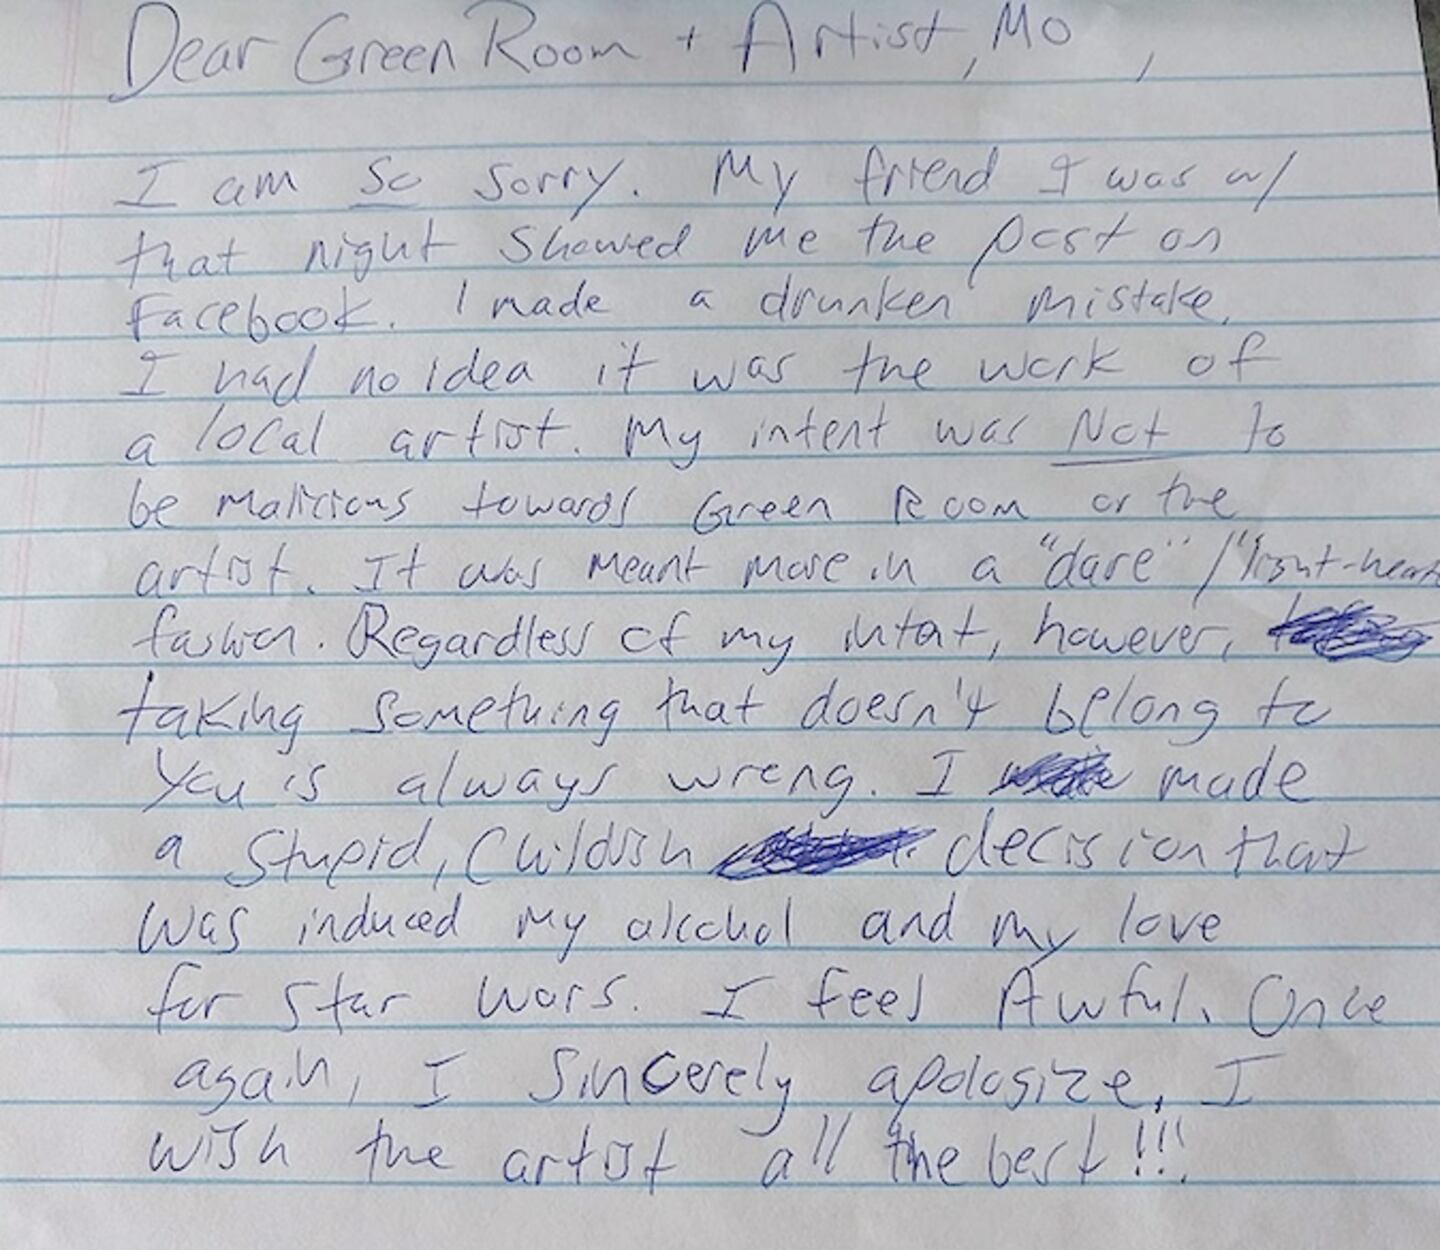 Dear Green Room + Artist, Mo ,
I am so sorry. My friend I was w/
that night showed me the post on
Facebook. I made a drunken mistake.
I had no idea it was the work of
a local artist. My intent was Not to
be malicious towards Green Room or the
artist. It was meant more in a "dare" / "light-heart
fashion. Regardless of my intent, however,
taking something that doesn't belong to
you is always wrong. I made
a stupid, childish decision that
was induced my alcohol and my love
for Star Wars. I feel Awful. Once
again, I sincerely apologize, I
wish the artist all the best!!!